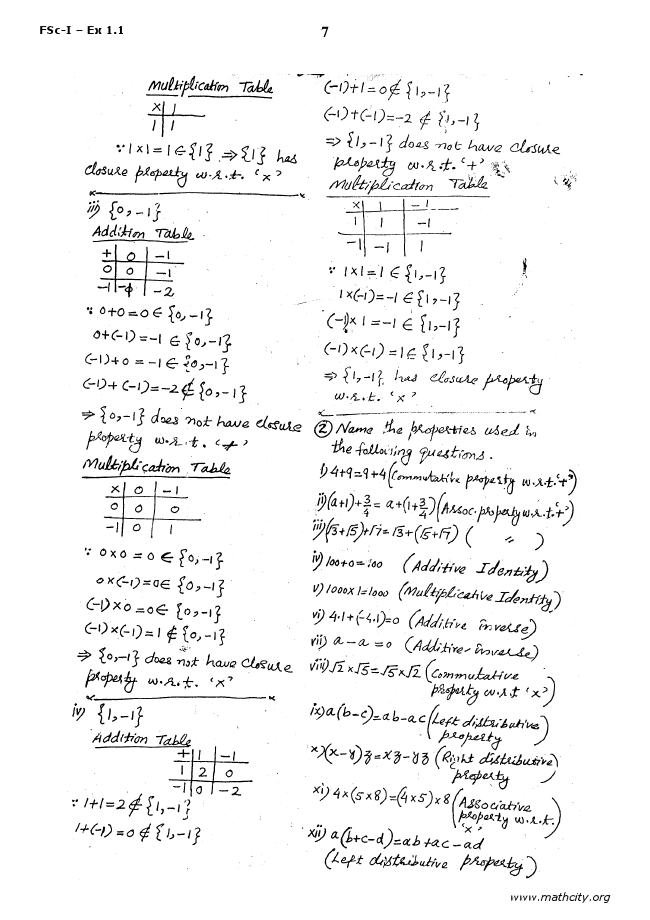 FSc-I – Ex 1.1
7
Multiplication Table
× | 1
1 | 1
∵ 1×1=1∈{1} ⇒{1} has
closure property w.r.t. 'x'
iii) {0,-1}
Addition Table
+ | 0 | -1
0 | 0 | -1
-1 | -1 | -2
∵ 0+0=0∈{0,-1}
0+(-1)=-1 ∈{0,-1}
(-1)+0 = -1∈{0,-1}
(-1)+(-1)=-2∉{0,-1}
⇒{0,-1} does not have closure
property w.r.t. '+'
Multiplication Table
× | 0 | -1
0 | 0 | 0
-1 | 0 | 1
∵ 0×0 = 0 ∈ {0,-1}
0×(-1)=0∈ {0,-1}
(-1)×0 =0∈ {0,-1}
(-1)×(-1)=1 ∉ {0,-1}
⇒ {0,-1} does not have closure
property w.r.t. 'x'
iv) {1,-1}
Addition Table
+ | 1 | -1
1 | 2 | 0
-1 | 0 | -2
∵ 1+1=2 ∉ {1,-1}
1+(-1) =0 ∉ {1,-1}
(-1)+1=0∉ {1,-1}
(-1)+(-1)=-2 ∉ {1,-1}
⇒ {1,-1} does not have closure
property w.r.t. '+'
Multiplication Table
× | 1 | -1
1 | 1 | -1
-1 | -1 | 1
∵ 1×1=1 ∈ {1,-1}
1×(-1)=-1 ∈{1,-1}
(-1)×1 =-1 ∈ {1,-1}
(-1)×(-1)=1∈{1,-1}
⇒ {1,-1} has closure property
w.r.t. 'x'
② Name the properties used in
the following questions.
i) 4+9=9+4 (Commutative property w.r.t. '+')
ii) (a+1)+3/4 = a+(1+3/4) (Assoc. property w.r.t. '+')
iii) (√3+√5)+√7=√3+(√5+√7) ( " )
iv) 100+0=100 (Additive Identity)
v) 1000×1=1000 (Multiplicative Identity)
vi) 4.1+(-4.1)=0 (Additive inverse)
vii) a-a=0 (Additive-inverse)
viii) √2×√5=√5×√2 (Commutative
property w.r.t 'x')
ix) a(b-c)=ab-ac (Left distributive
property)
x) (x-y)z=xz-yz (Right distributive
property)
xi) 4×(5×8)=(4×5)×8 (Associative
property w.r.t.
'x')
xii) a(b+c-d)=ab+ac-ad
(Left distributive property)
www.mathcity.org